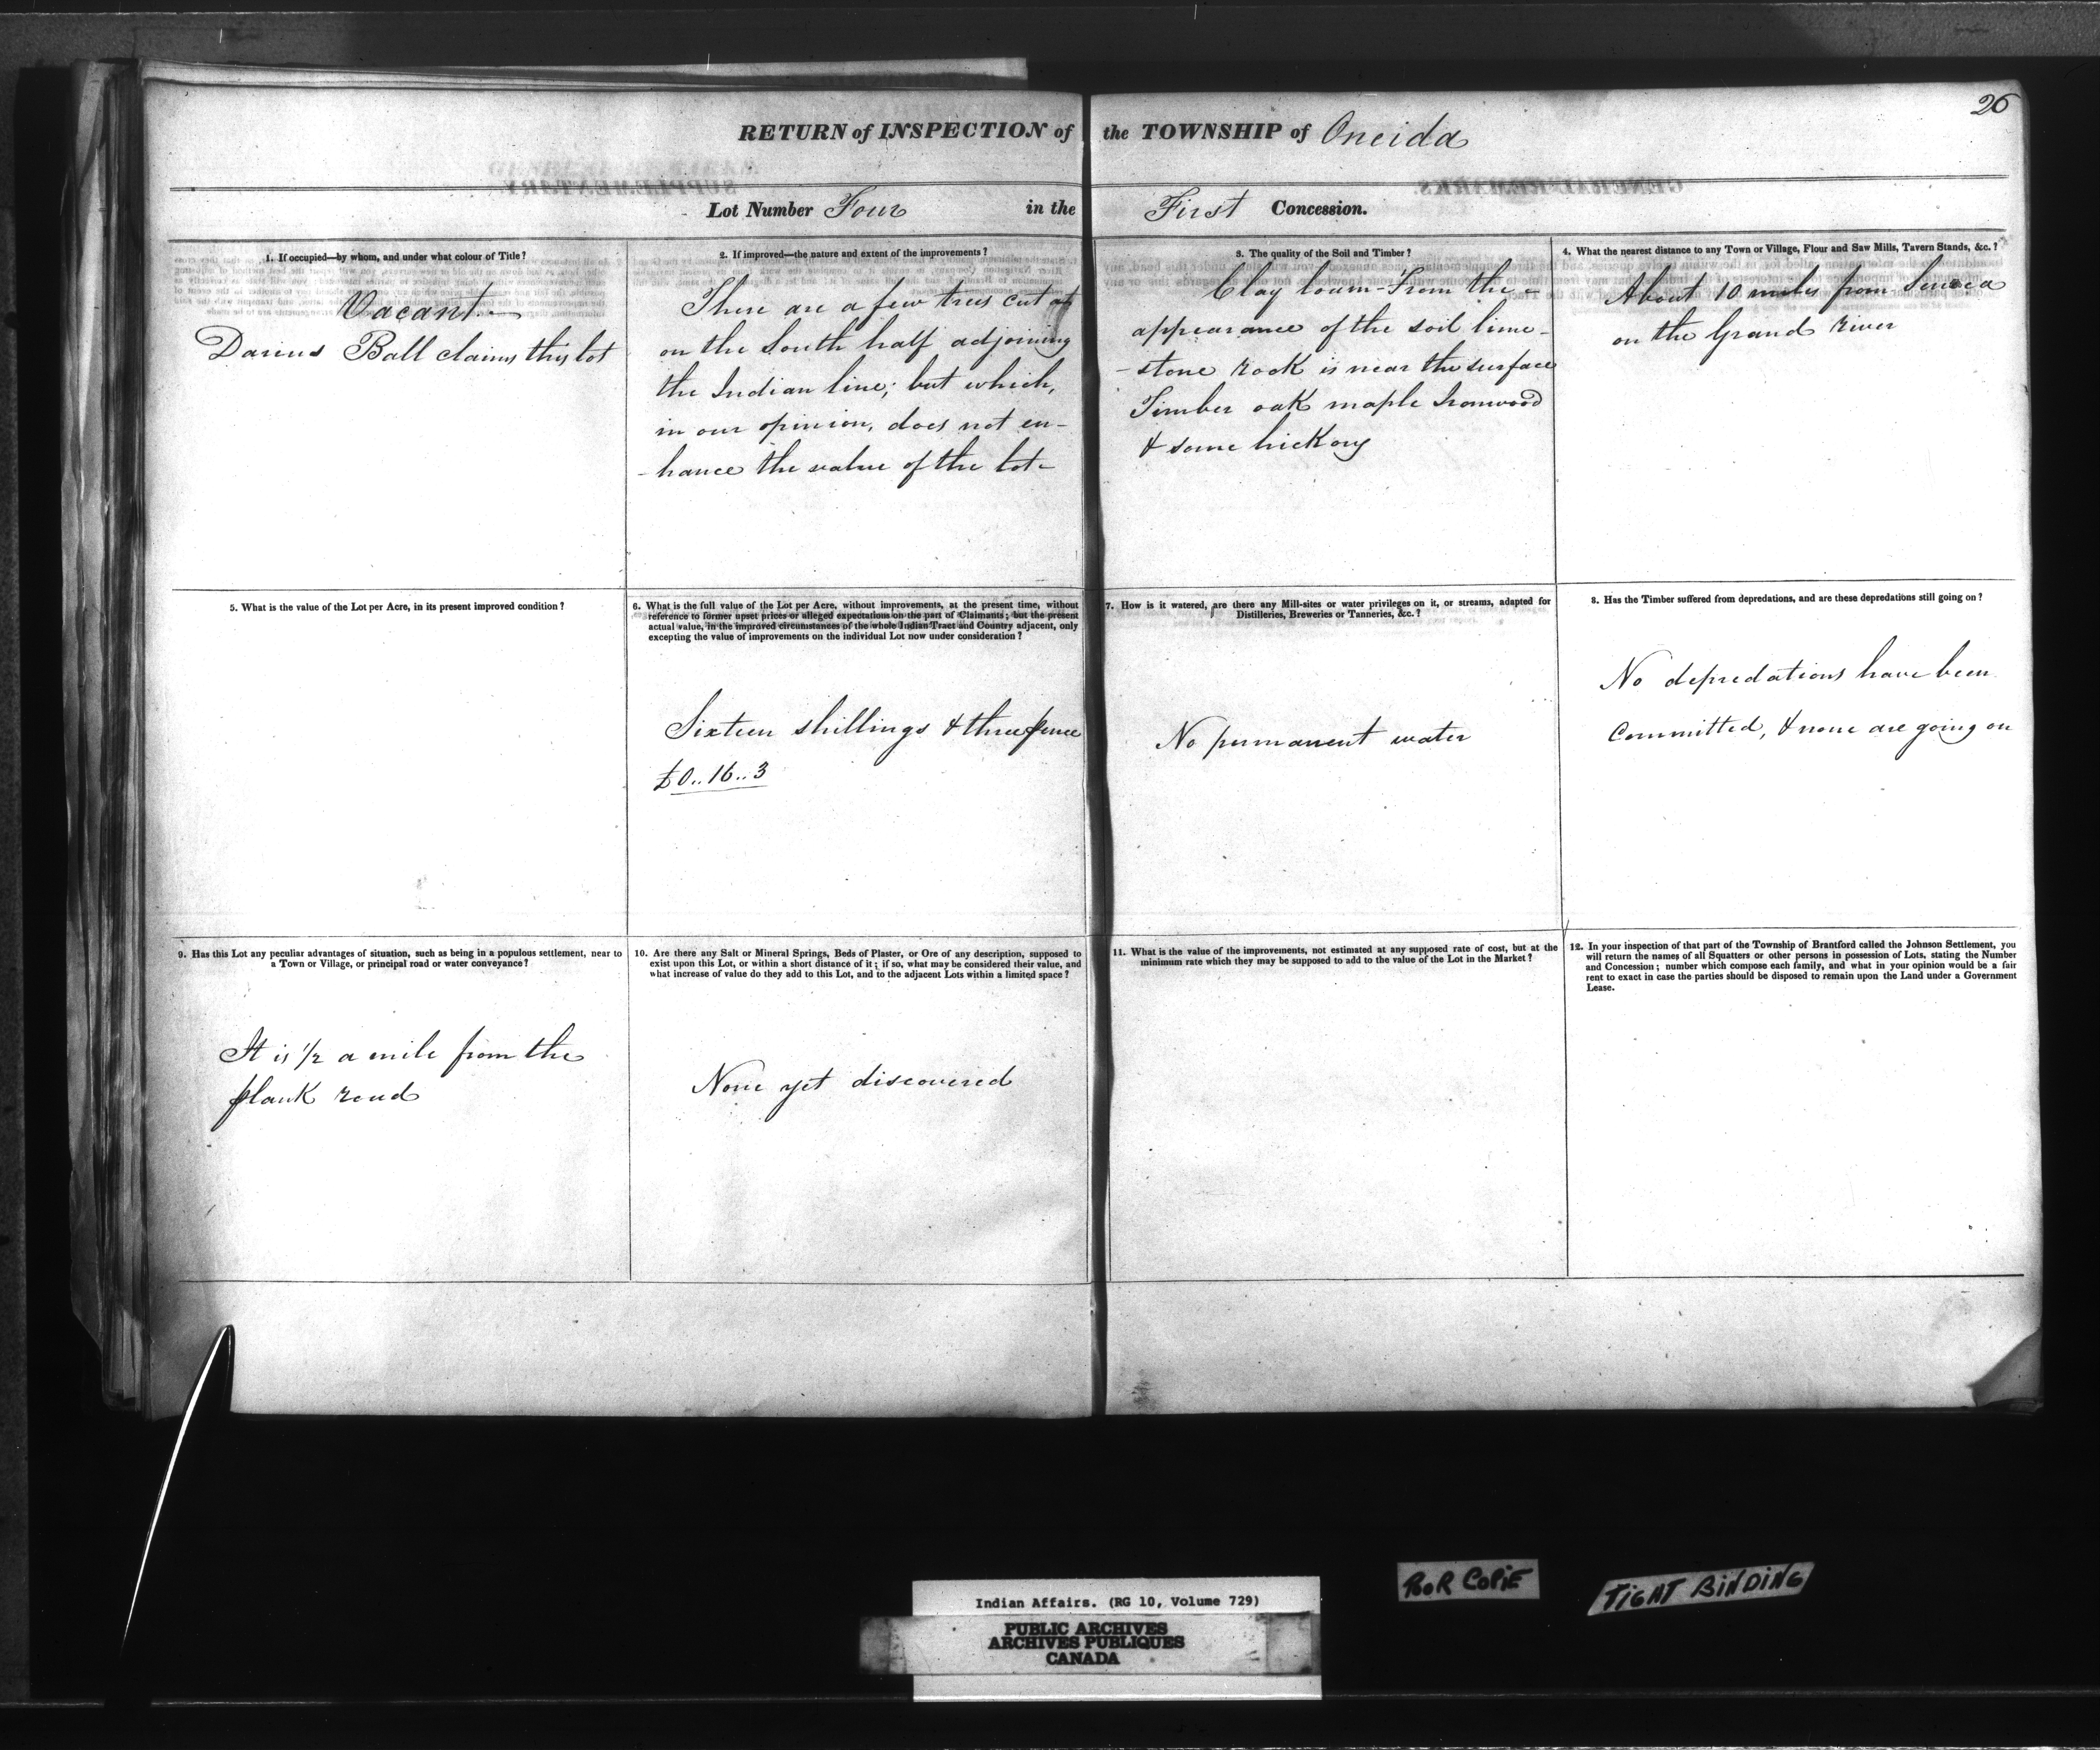 26
RETURN of INSPECTION of the TOWNSHIP of Oneida
Lot Number Four in the First Concession.
1. If occupied—by whom, and under what colour of Title?
Vacant —
Darius Ball claims this lot
2. If improved—the nature and extent of the improvements?
There are a few trees cut
on the South half adjoining
the Indian line; but which,
in our opinion, does not en-
-hance the value of the lot-
3. The quality of the Soil and Timber?
Clay loam - From the
appearance of the soil lime-
-stone rock is near the surface
Timber oak maple Ironwood
& some hickory
4. What the nearest distance to any Town or Village, Flour and Saw Mills, Tavern Stands, &c.?
About 10 miles from Seneca
on the Grand River
5. What is the value of the Lot per Acre, in its present improved condition?
6. What is the full value of the Lot per Acre, without improvements, at the present time, without
reference to former upset prices or alleged expectations on the part of Claimants; but the present
actual value, in the improved circumstances of the whole Indian Tract and Country adjacent, only
excepting the value of improvements on the individual Lot now under consideration?
Sixteen shillings & three pence
£0..16..3
7. How is it watered, are there any Mill-sites or water privileges on it, or streams, adapted for
Distilleries, Breweries or Tanneries, &c.?
No permanent water
8. Has the Timber suffered from depredations, and are these depredations still going on?
No depredations have been
Committed, & none are going on
9. Has this Lot any peculiar advantages of situation, such as being in a populous settlement, near to
a Town or Village, or principal road or water conveyance?
It is 1/2 a mile from the
plank road
10. Are there any Salt or Mineral Springs, Beds of Plaster, or Ore of any description, supposed to
exist upon this Lot, or within a short distance of it; if so, what may be considered their value, and
what increase of value do they add to this Lot, and to the adjacent Lots within a limited space?
None yet discovered
11. What is the value of the improvements, not estimated at any supposed rate of cost, but at the
minimum rate which they may be supposed to add to the value of the Lot in the Market?
12. In your inspection of that part of the Township of Brantford called the Johnson Settlement, you
will return the names of all Squatters or other persons in possession of Lots, stating the Number
and Concession; number which compose each family, and what in your opinion would be a fair
rent to exact in case the parties should be disposed to remain upon the Land under a Government
Lease.
POOR COPIE
TIGHT BINDING
Indian Affairs. (RG 10, Volume 729)
PUBLIC ARCHIVES
ARCHIVES PUBLIQUES
CANADA